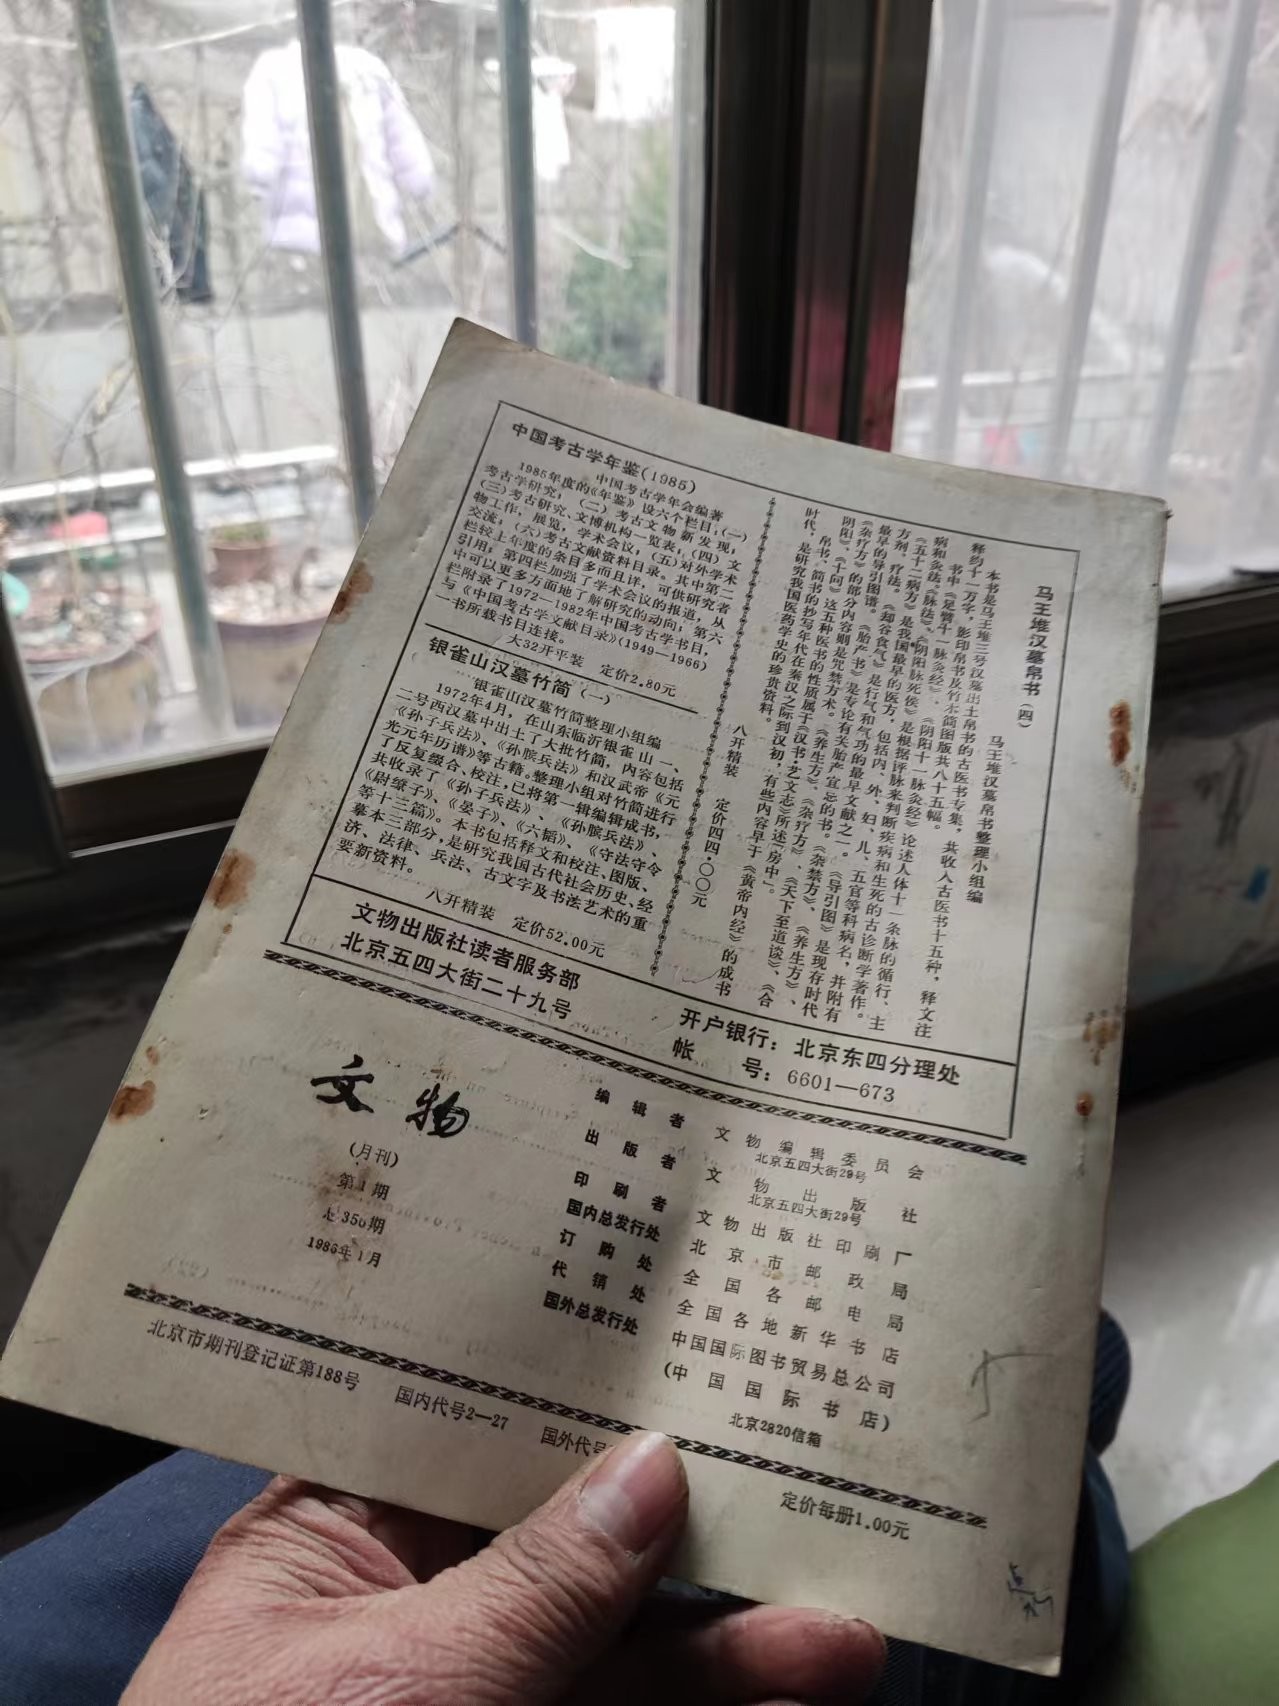 中国考古学年鉴(1985)
中国考古学年会编著
1985年度的《年鉴》设六个栏目：(一)
考古学研究；(二)考古文物新发现；
(三)考古研究、文博机构一览表；(四)文
物工作，展览，学术会议；(五)对外学术
交流；(六)考古文献资料目录。其中第二
栏较上年度的条目多而且详，可供研究者
引用；第四栏加强了学术会议的报道，从
中可以更多方面地了解研究的动向；第六
栏附录了1972—1982年中国考古学书目，
与《中国考古学文献目录》(1949—1966)
一书所载书目连接。
大32开平装 定价2.80元
银雀山汉墓竹简(一)
银雀山汉墓竹简整理小组编
1972年4月，在山东临沂银雀山一、
二号西汉墓中出土了大批竹简，内容包括
《孙子兵法》、《孙膑兵法》和汉武帝《元
光元年历谱》等古籍。整理小组对竹简进行
了反复缀合、校注，已将第一辑编辑成书，
共收录了《孙子兵法》、《孙膑兵法》、
《尉缭子》、《晏子》、《六韬》、《守法守令
等十三篇》。本书包括释文和校注、图版、
摹本三部分，是研究我国古代社会历史、经
济、法律、兵法、古文字及书法艺术的重
要新资料。
八开精装 定价52.00元
马王堆汉墓帛书(四)
马王堆汉墓帛书整理小组编
本书是马王堆三号汉墓出土帛书的古医书专集，共收入古医书十五种，释文注
释约十一万字，影印帛书及竹木简图版共八十五幅。
书中《足臂十一脉灸经》、《阴阳十一脉灸经》论述人体十一条脉的循行、主
病和灸法。《脉法》、《阴阳脉死候》是根据评脉来判断疾病和生死的古诊断学著作。
《五十二病方》是我国最早的医方，包括内、外、妇、儿、五官等科病名，并附有
方剂、疗法。《却谷食气》是行气和气功的最早文献之一。《导引图》是现存时代
最早的导引图谱。《胎产书》是专论有关胎产宜忌的书。《杂禁方》、《养生方》、
《杂疗方》的部分内容则是咒禁方术。《养生方》、《杂疗方》、《天下至道谈》、《合
阴阳》、《十问》这五种医书的性质属于《汉书·艺文志》所述“房中”。
帛书、简书的抄写年代在秦汉之际到汉初，有些内容早于《黄帝内经》的成书
时代，是研究我国医药学史的珍贵资料。
八开精装 定价四四·〇〇元
文物出版社读者服务部
北京五四大街二十九号
开户银行：北京东四分理处
帐 号：6601—673
文物
(月刊)
第1期
1986年1月
编辑者 文物编辑委员会
北京五四大街29号
出版者 文物出版社
北京五四大街29号
印刷者 文物出版社印刷厂
国内总发行处 北京市邮政局
订购处 全国各邮电局
代销处 全国各地新华书店
国外总发行处 中国国际图书贸易总公司
(中国国际书店)
北京2820信箱
北京市期刊登记证第188号 国内代号2—27 国外代号
定价每册1.00元